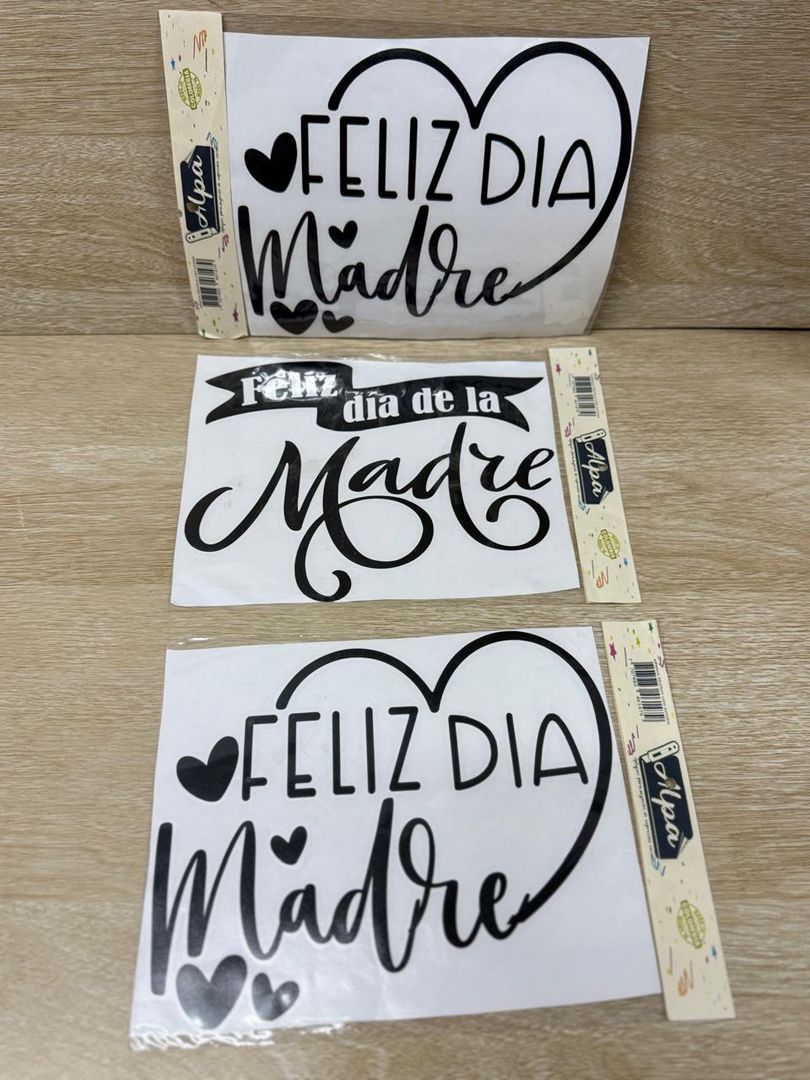 FELIZ DIA
Madre
Alpa
Feliz
dia de la
Madre
Alpa
COLOMBIA
FELIZ DIA
Madre
Alpa
COLOMBIA